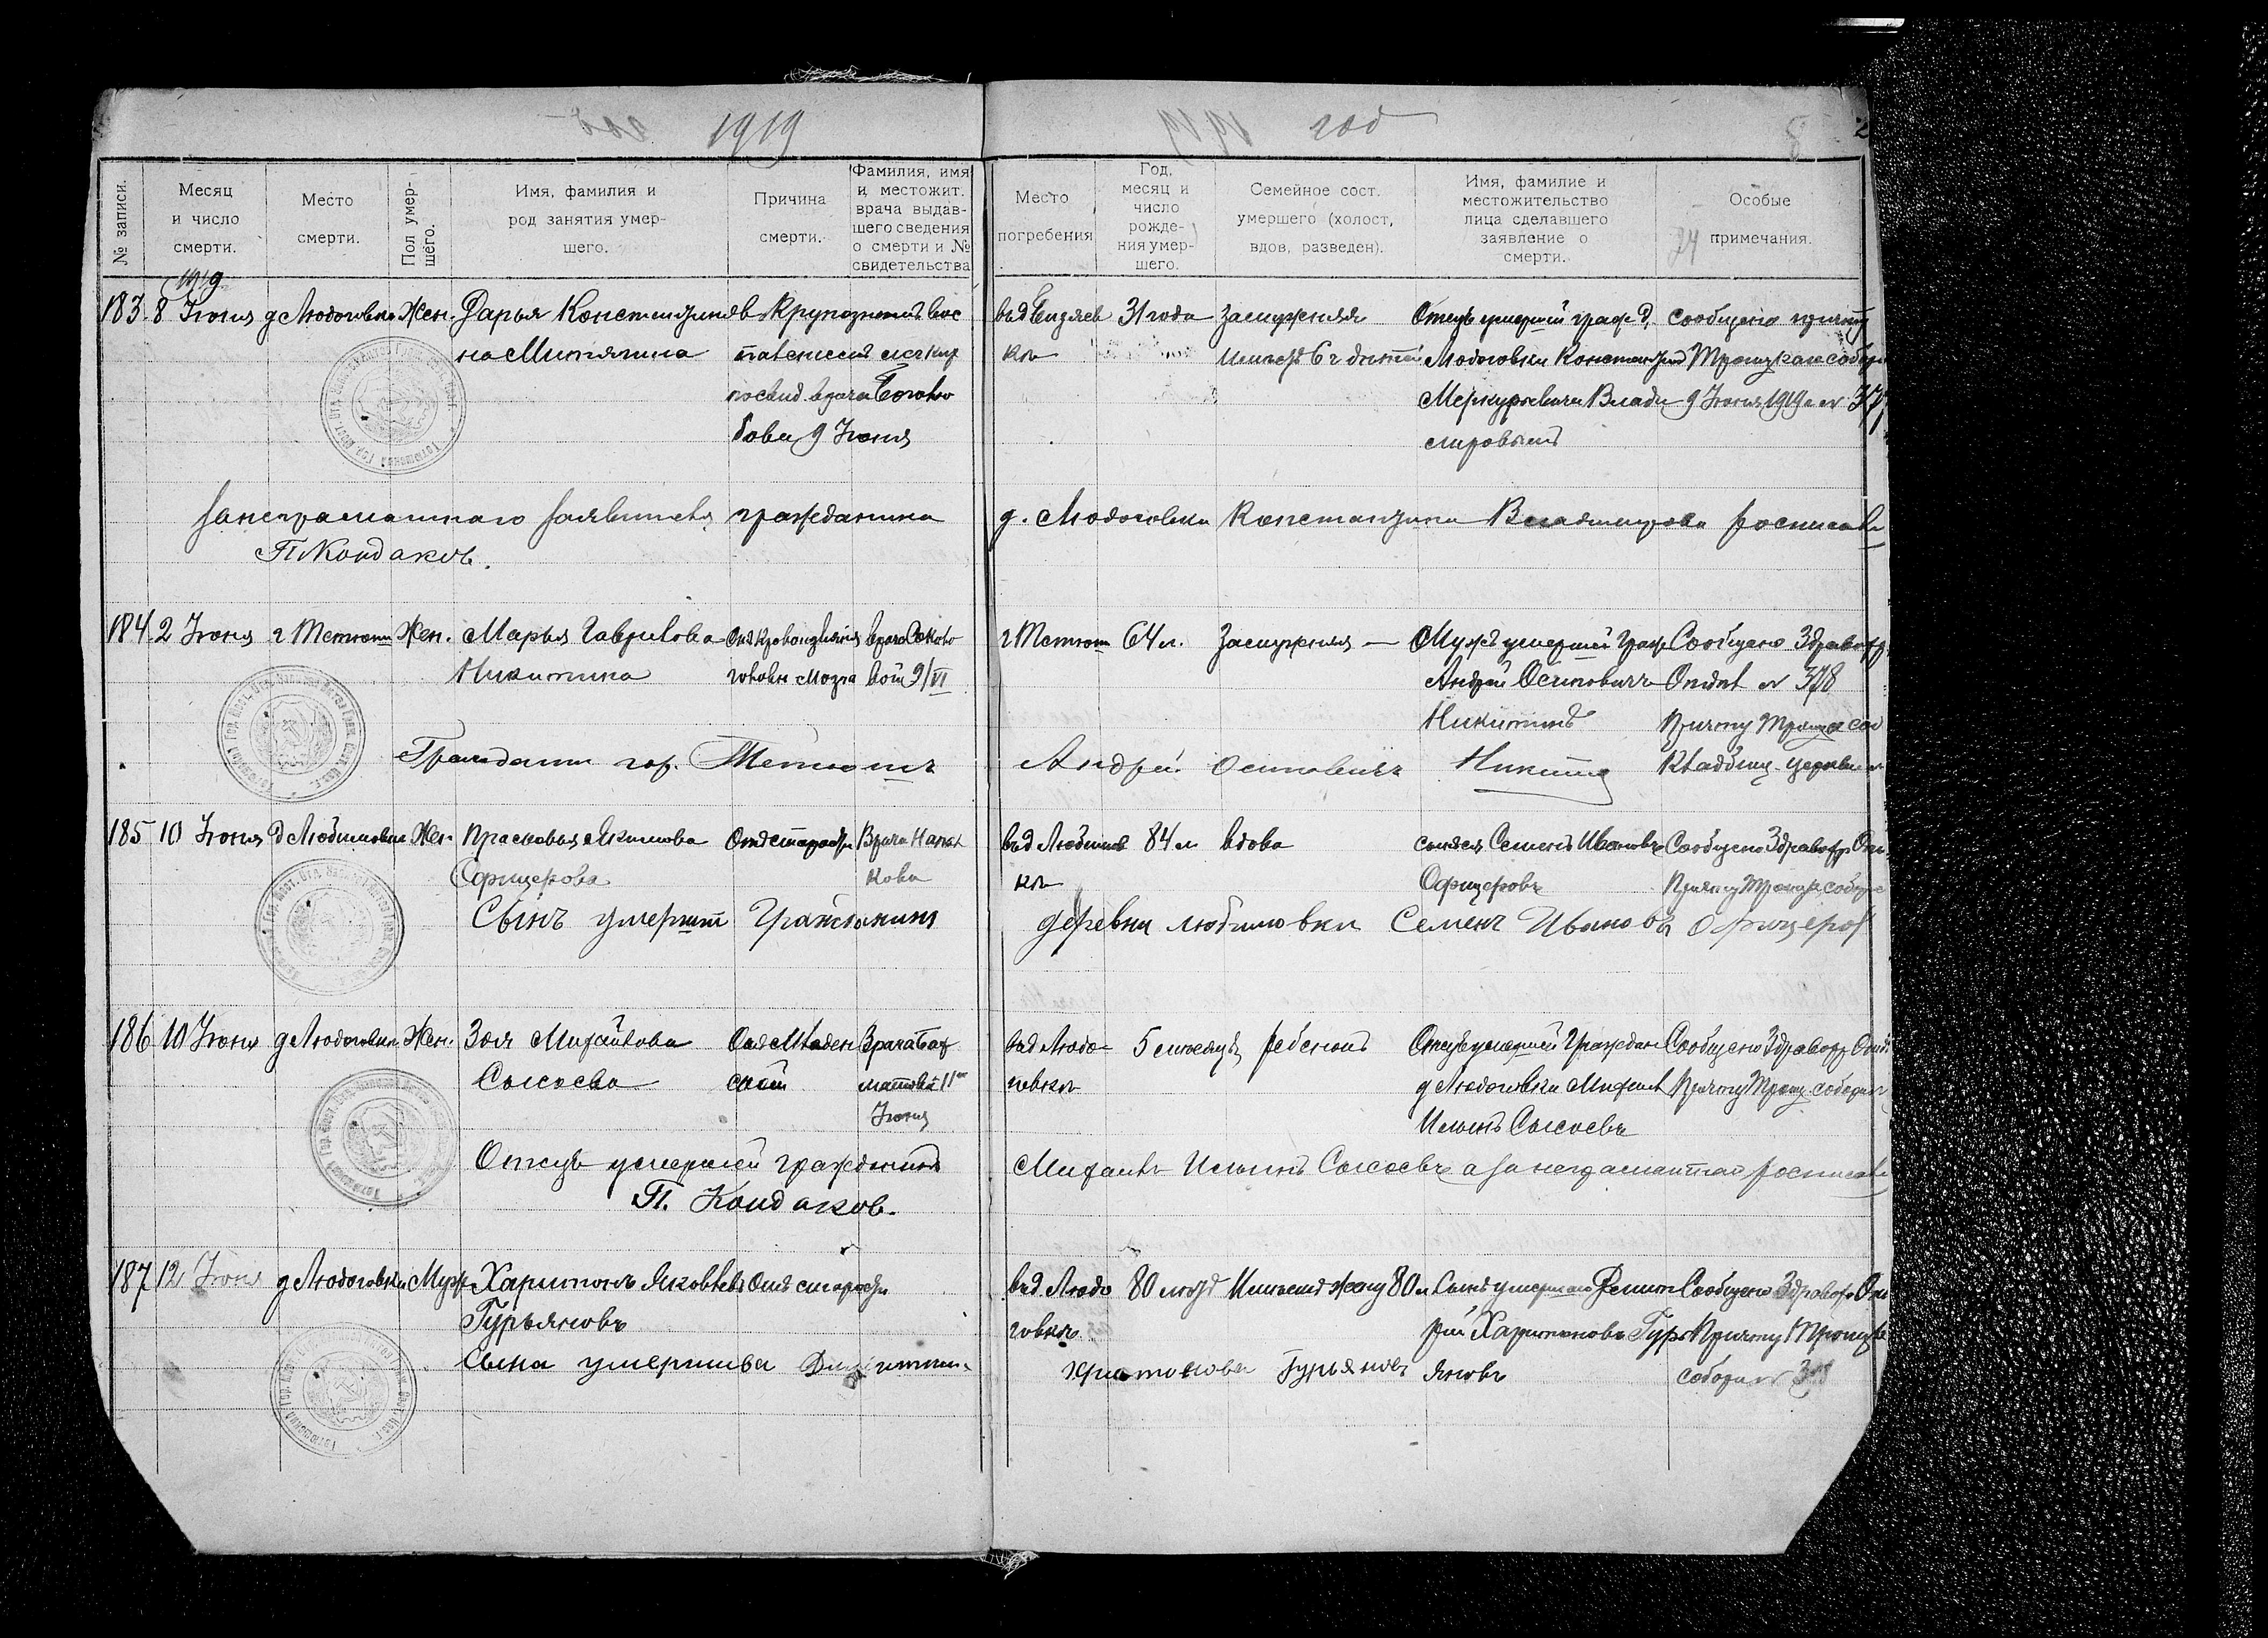 1919
1919 год
8
№ записи.
Месяц
и число
смерти.
Место
смерти.
Пол умер-
шего.
Имя, фамилия и
род занятия умер-
шего.
Причина
смерти.
Фамилия, имя
и местожит.
врача выдав-
шего сведения
о смерти и №
свидетельства
Место
погребения
Год,
месяц и
число
рожде-
ния умер-
шего.
Семейное сост.
умершего (холост,
вдов, разведен).
Имя, фамилие и
местожительство
лица сделавшего
заявление о
смерти.
Особые
примечания.
24
1919
183 8 Июня д Людоговка Жен. Дарья Константино
на Митягина
Крупозной вос
паление легких
по свид. врача Боголю
бова 9 Июня
31 года
замужняя
имеет 6 ч детей
Отец умершей граж. д.
Людоговки Константин
Меркурьевич Влади
мировым
сообщено причту
Троицкаго собора
9 Июня 1919 г № 377
За неграмотного заявителя гражданина д. Людоговки Константина Владимирова росписался
П Кондаков.
184 2 Июня г Тетюши Жен. Марья Гаврилова
Никитина
От кровоизлияния
головн мозга
врача Соколо
вой 9/VI
г Тетюши 64 л. Замужняя —
Муж умершей граж
Андрей Осипович
Никитинъ
Сообщено Здравотд
Отдел № 378
Причту Троицк соб
Кладбищ. церкви №
Гражданин гор. Тетюшъ Андрей Осиповичъ Никитин
185 10 Июня д Любимовка Жен. Прасковья Якимова
Офицерова
От старости
Врача
кова
в д Любимов
ке
84 л вдова
сынъ Семенъ Ивановъ
Офицеровъ
Сообщено Здравотд Отд
Причту Троицк собора
Сынъ умершей Гражданинъ деревни любимовки Семенъ Иванова Офицеров
186 10 Июня д Людоговка Жен. Зоя Михайлова
Сысоева
От Младен
ской
Врача Бах
матовой 11го
Июня
в д Людо-
говке
5 месяцевъ ребенокъ
Отецъ умершей Граждан
д Людоговки Михаил
Ильинъ Сысоевъ
Сообщено Здравотд Отд
Причту Троиц. собора №
Отецъ умершей гражданинъ Михаилъ Ильинъ Сысоевъ а за неграмотной росписался
П. Кондаков.
187 12 Июня д Людоговка Муж Харитонъ Яковлевъ
Гурьяновъ
От старости
в д Людо
говке
80 летъ Имеетъ жену 80 л
Сынъ умершаго Дмит
рий Харитоновъ Гурь
яновъ
Сообщено Здравотд Отд
Причту Троицкаго
собора №
Сына умершива Дмитрий Харитонова Гурьяновъ